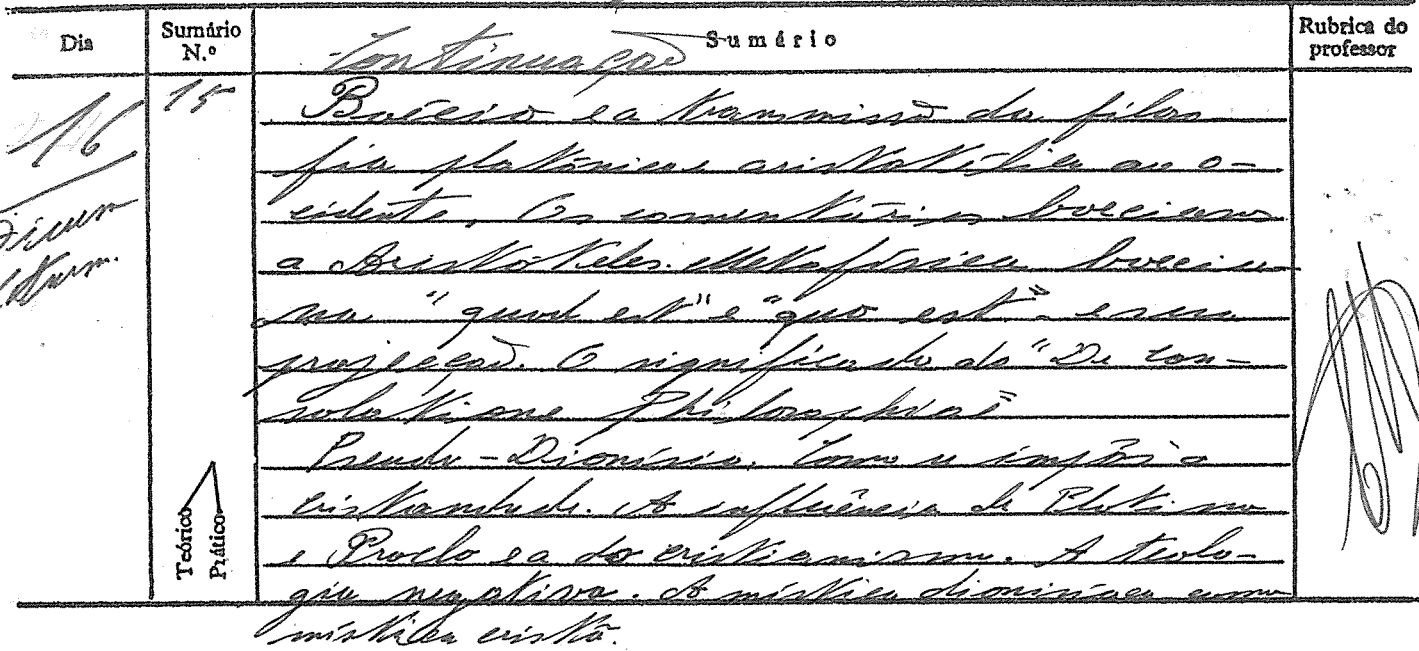 Dia
Sumário N.º
Sumário
Rubrica do professor
Continuação
16
15
Boécio e a transmissão da filoso
fia platónica e aristotélica ao o-
cidente, Os comentários boecianos
a Aristóteles. Metafísica boecia
na "quod est" e "quo est" e sua
projecção. O significado do "De Con-
solatione Philosophiae"
Pseudo-Dionísio. Como se impôs à
cristandade. A influência de Plotino
e Proclo e a do cristianismo. A teolo-
gia negativa. A mística dionisíaca como
mística cristã.
Teórico
Prático